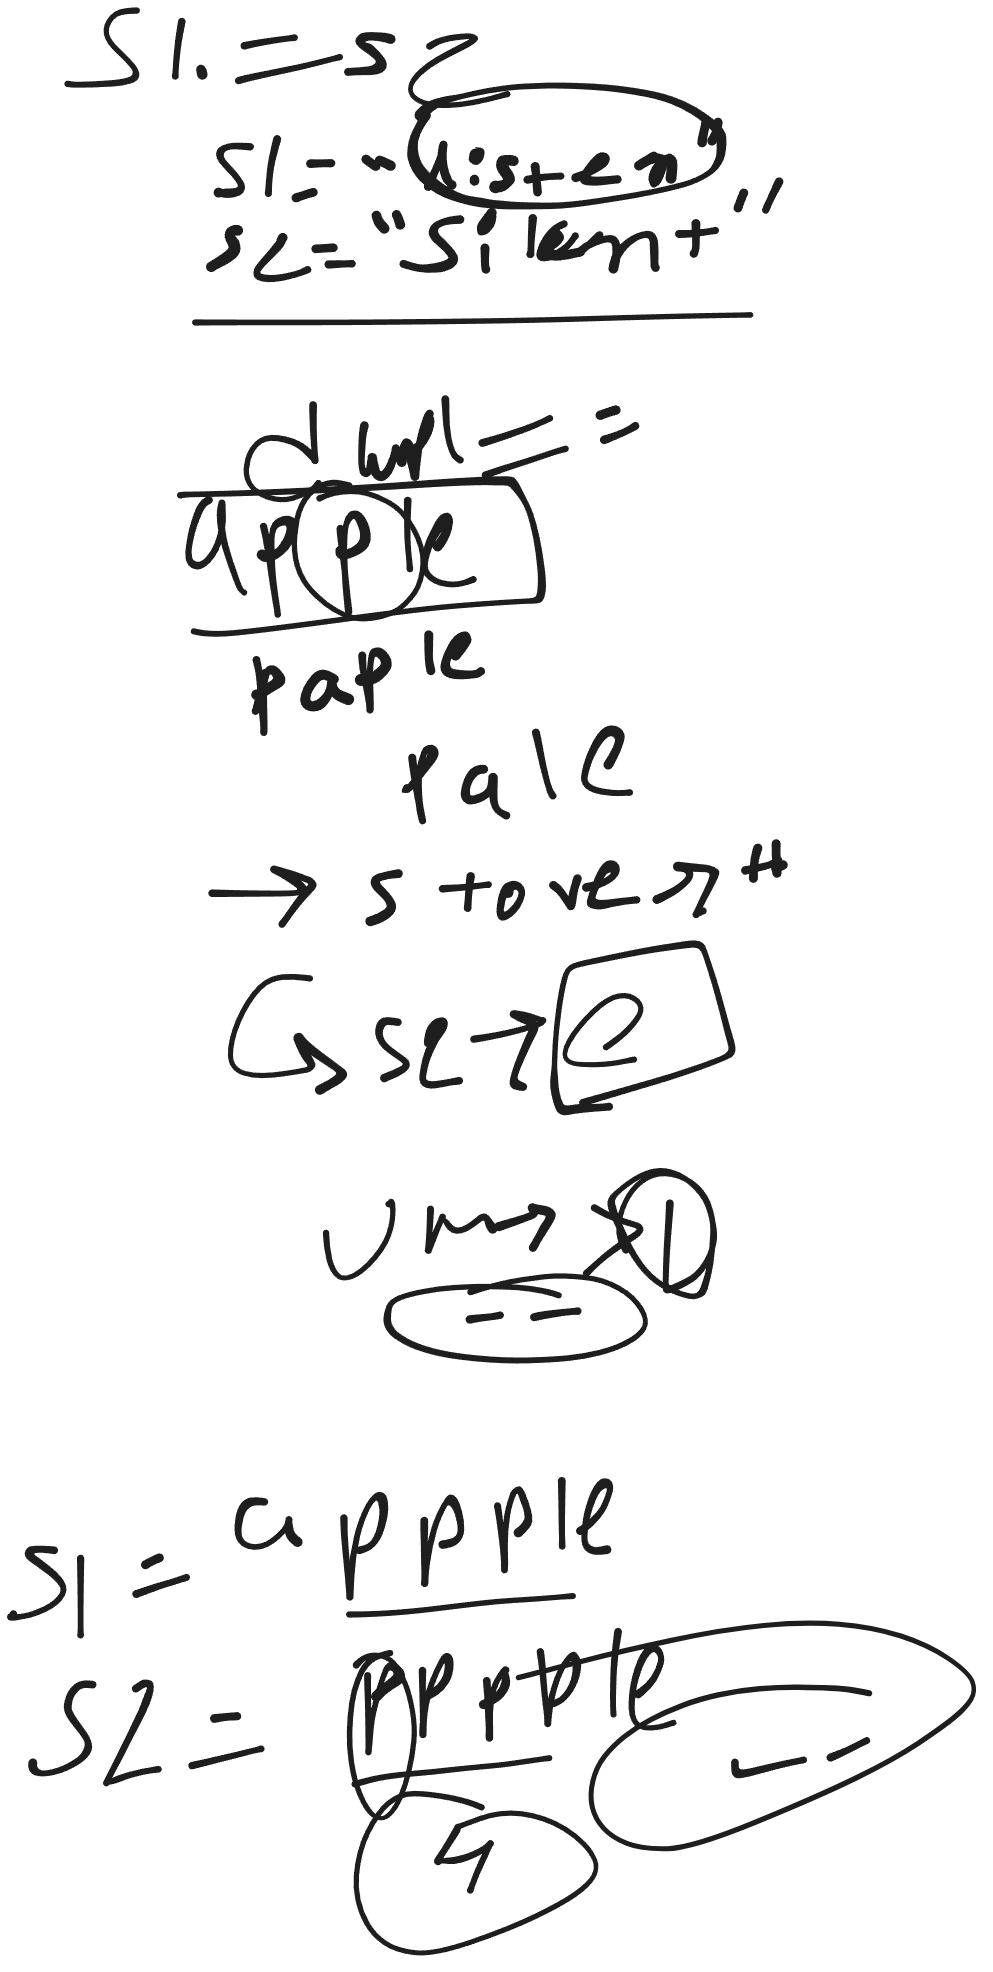 S1. = s2
s1 = "listen"
s2 = "silent"
dupl = =
apple
paple
pale
→ store →
s2 →
1
appple
s1 =
s2 = pppple
4